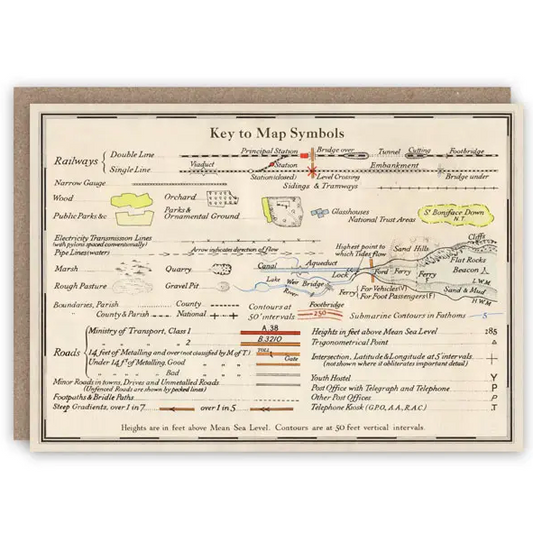 Key to Map Symbols
Railways { Double Line Principal Station Bridge over Tunnel Cutting Footbridge
Single Line Viaduct Station Station (closed) Level Crossing Embankment Bridge under
Narrow Gauge Sidings & Tramways
Wood Orchard Glasshouses St Boniface Down N.T.
Public Parks &c Parks & Ornamental Ground National Trust Areas
Electricity Transmission Lines
(with pylons spaced conventionally)
Pipe Lines (water) Arrow indicates direction of flow
Highest point to which Tides flow Sand Hills Cliffs
Flat Rocks
Marsh Quarry Canal Aqueduct Lock Ford Ferry Ferry Beacon L.W.M.
Rough Pasture Gravel Pit Lake Weir Bridge River Ferry { For Vehicles (V) For Foot Passengers (F) Sand & Mud H.W.M.
Boundaries, Parish County Contours at 50' intervals Footbridge 250 Submarine Contours in Fathoms 5
County & Parish National
Roads { Ministry of Transport, Class 1 A.38 Heights in feet above Mean Sea Level 285
" " 2 B.3210 Trigonometrical Point
14 feet of Metalling and over (not classified by M.of T.) TOLL Gate Intersection, Latitude & Longitude at 5' intervals
Under 14 ft of Metalling, Good (not shown where it obliterates important detail)
" " Bad
Minor Roads in towns, Drives and Unmetalled Roads Youth Hostel Y
(Unfenced Roads are shown by pecked lines) Post Office with Telegraph and Telephone P
Footpaths & Bridle Paths Other Post Offices P
Steep Gradients, over 1 in 7 over 1 in 5 Telephone Kiosk (G.P.O, A.A., R.A.C.) T
Heights are in feet above Mean Sea Level. Contours are at 50 feet vertical intervals.